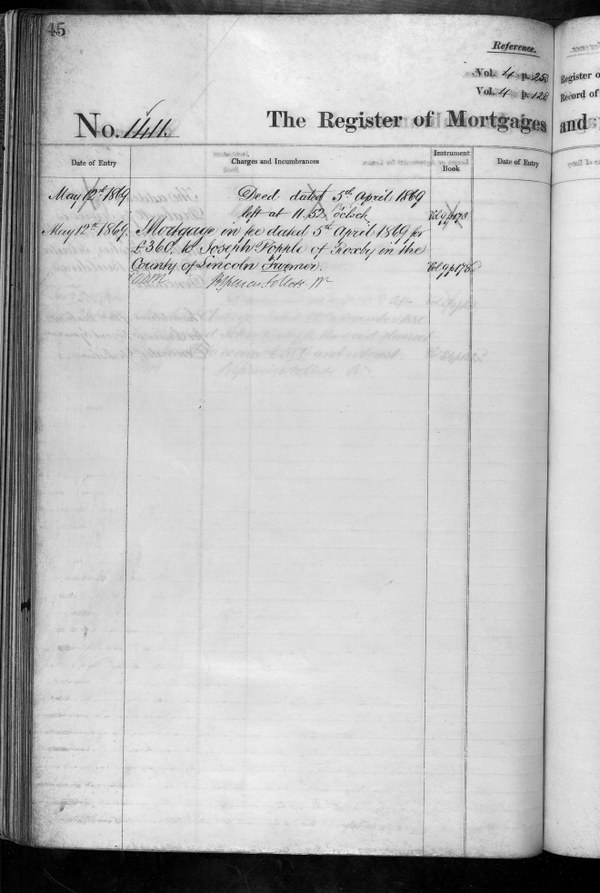 45
Reference.
Vol. 4 p. 258
Vol. 4 p. 128
No. 1411.
The Register of Mortgages and
Register o
Record of
Date of Entry
Charges and Incumbrances
Instrument Book
Date of Entry
May 12th 1869
Deed dated 5th April 1869
left at 11.52 oClock
May 12th 1869.
Mortgage in fee dated 5th April 1869 for
£360. to Joseph Popple of Roxby in the
County of Lincoln Farmer.
Vol 9 p 178